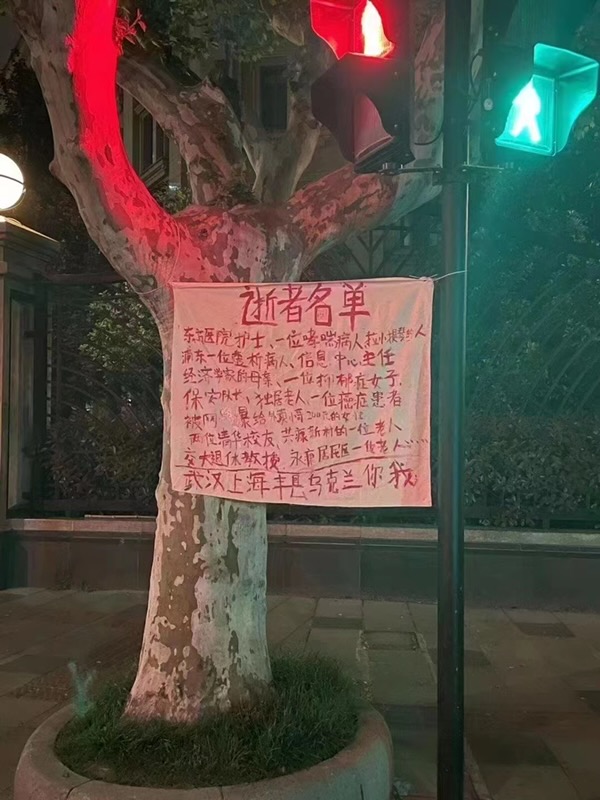 逝者名单
东方医院护士、一位哮喘病人、拉小提琴的人
浦东一位透析病人、信息中心主任
经济学家的母亲、一位抑郁症女子、
保安队长、独居老人、一位癌症患者
被网暴给外卖员200元的女
两位清华校友、共康新村的一位老人
交大退休教授、永和居民区一位老人……
武汉上海丰县乌克兰你我